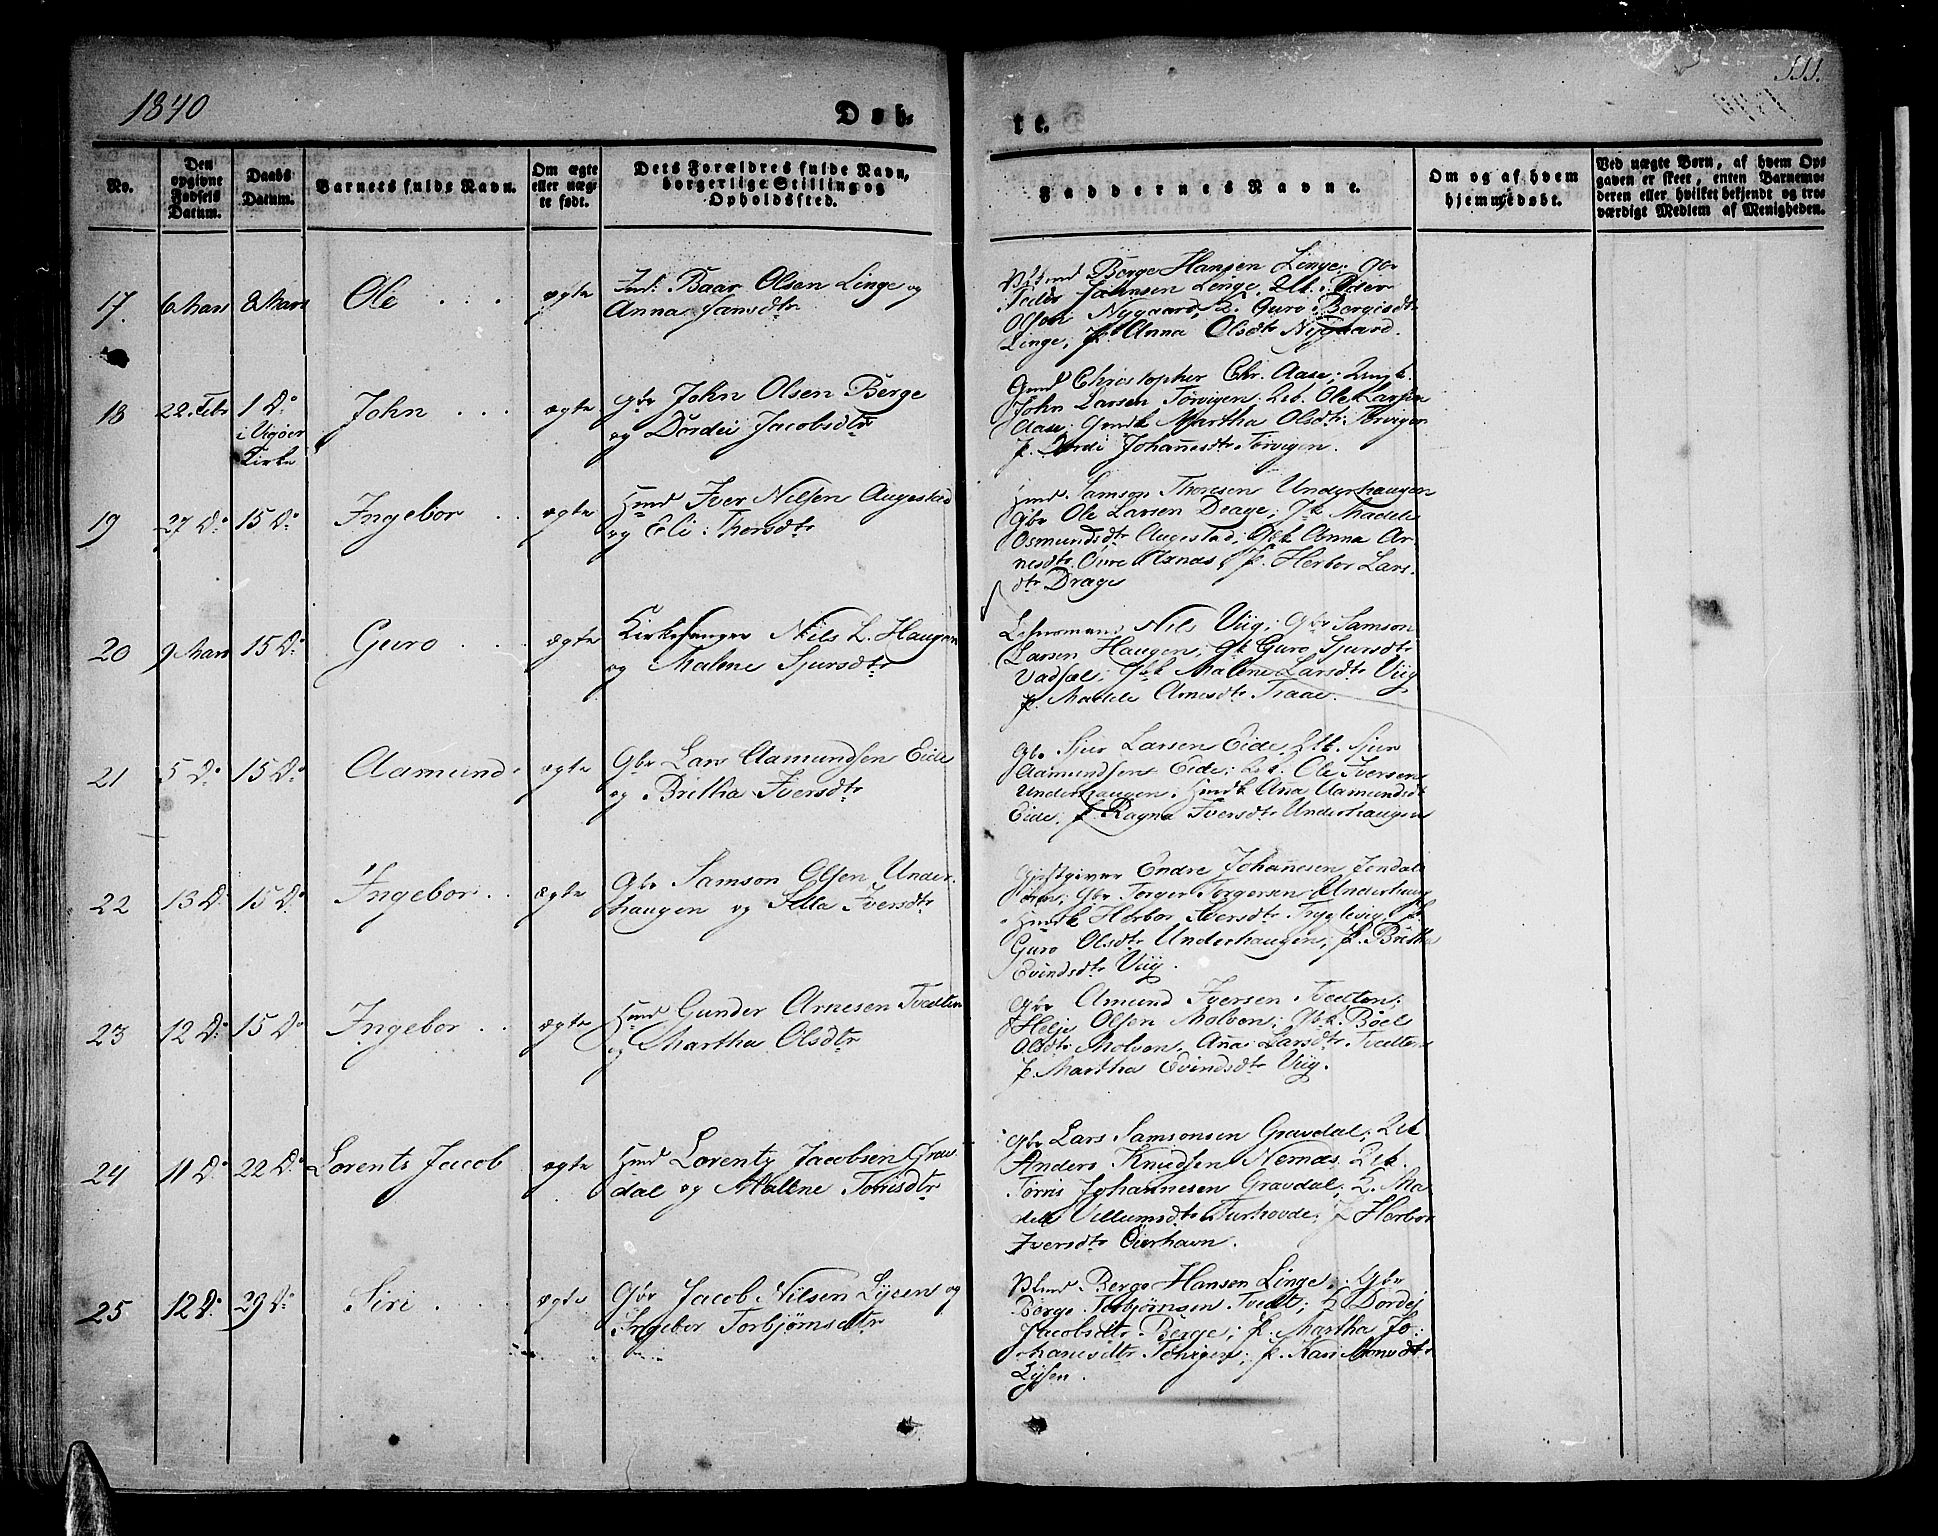 1840
Døb-
te.
111.
No.
Den
opgivne
Fødsels
Datum.
Daabs
Datum.
Barnets fulde Navn.
Om ægte
eller uæg-
te født.
Dets Forældres fulde Navn,
borgerlige Stilling og
Opholdssted.
Faddernes Navne.
Om og af hvem
hjemmedøbt.
Ved uægte Børn, af hvem Op-
gaven er skeet, enten Barnemo-
deren eller hvilket bekjendt og tro-
værdigt Medlem af Menigheden.
17.
6 Mars
8 Mars
Ole
ægte
Baar Olsen Linge og
Anna Jansdtr
Børge Hansen Linge; Gbr
Peder Johnsen Linge,
Olsen Nygaard, Guro Børgisdtr
Linge, P. Anna Olsdtr Nygaard.
18
22 Febr
1 Do
i Vigøer
Kirke
John
ægte
Gbr John Olsen Berge
og Dordei Jacobsdtr
Christopher Chr. Aase;
John Larsen Torvigen; Ole Larsen
Aase; Martha Olsdtr Torvigen
P. Johannesdtr Torvigen.
19
27 Do
15 Do
Ingebor
ægte
Hmd Iver Nilsen Augestad
og Eli Thorsdtr
Hmd. Samson Thoresen Underhaugen
Gbr Ole Larsen Drage; Madele
Osmundsdtr Augestad; Gbk Anna Ar-
nesdtr Øvre Axnæs, P. Herbor Lars-
dtr Drage
20
9 Mars
15 Do
Guro
ægte
Kirkesanger Nils L. Haugen
og Malene Sjursdtr
Lehnsmand Nils Viig; Gbr Samson
Larsen Haugen; Guro Sjursdtr
Vadsæl; Gbk Malene Larsdtr Viig
P. Madele Arnesdtr Traae.
21
5 Do
15 Do
Aamund
ægte
Gbr Lars Aamundsen Eide
og Britha Iversdtr
Gbr Sjur Larsen Eide, Sjur
Aamundsen Eide; Ole Iversen
Underhaugen; Hmdk Ana Aamundsdtr
Eide; P. Ragna Iversdtr Underhaugen
22
13 Do
15 Do
Ingebor
ægte
Gbr Samson Olsen Under-
haugen og Iversdtr
Gjestgiver Endre Johannesen Jondals-
øren; Gbr Torger Torgersen Underhaug
Hmdk Herbor Iversdtr P.
Guro Olsdtr Underhaugen; P. Britha
Evindsdtr Viig.
23
12 Do
15 Do
Ingebor
ægte
Hmd Gunder Arnesen Tveiten
og Martha Olsdtr
Gbr Amund Iversen Tveiten;
Helje Olsen Molven; Gbk. Bøel
Olsdtr Molven, Ana Larsdtr Tveiten
P. Martha Evindsdtr Viig.
24
11 Do
22 Do
Lorents Jacob
ægte
Hmd Lorents Jacobsen Grav-
dal og Malene Tonisdtr
Gbr Lars Samsonsen Gravdal;
Anders Knudsen Nernæs,
Johannesen Gravdal; Ma-
dele Villumsdtr Furhovde; Herbor
Iversdtr
25
12 Do
29 Do
Siri
ægte
Gbr Jacob Nilsen Lysen og
Ingebor Torbjørnsdtr
Børge Hansen Linge; Gbr
Børge Torbjørnsen Tvedt; Dordej
Jacobsdtr Berge; P. Martha Jo-
hanesdtr P. Kari Monsdtr
Lysen.